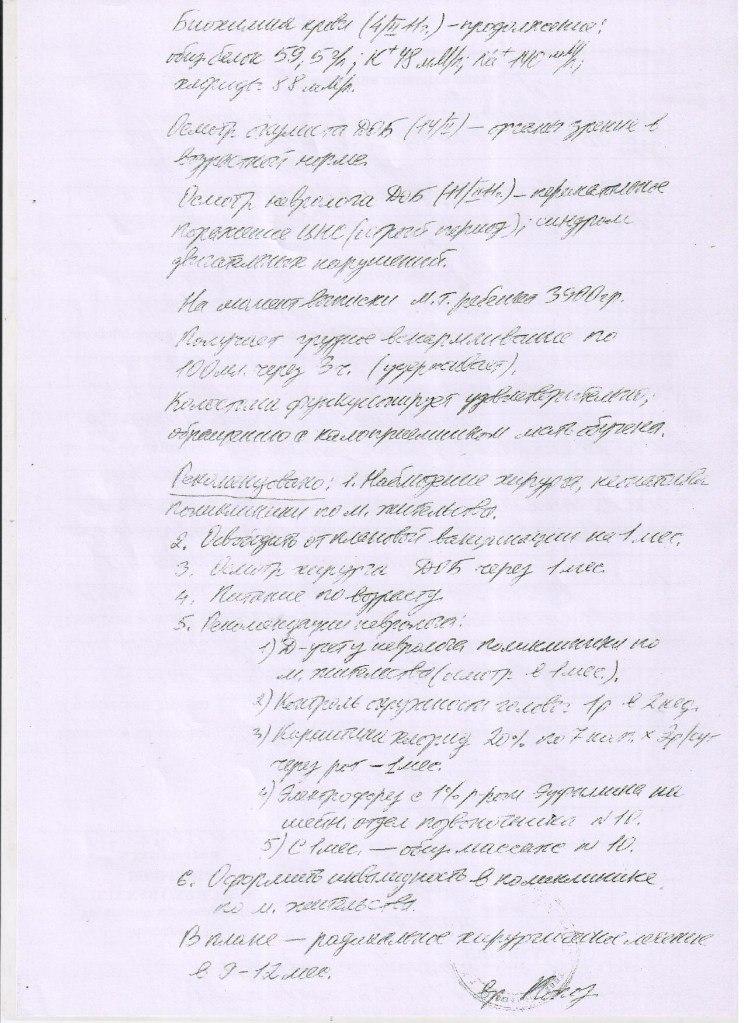 Биохимия крови (4/III-11г.) – продолжение:
общ. белок 59,5 г/л; K⁺ 4,8 мМ/л; Na⁺ 140 мМ/л;
хлориды 88 мМ/л.
Осмотр окулиста ДОБ (14/III) – органы зрения в
возрастной норме.
Осмотр невролога ДОБ – перинатальное
поражение ЦНС (острый период); синдром
двигательных нарушений.
На момент выписки м.т. ребенка 3900 гр.
Получает грудное вскармливание по
100 мл. через 3 ч. (удерживает).
Колостома функционирует удовлетворительно,
обращению с калоприемником мать обучена.
Рекомендовано: 1. Наблюдение хирурга, педиатра
поликлиники по м. жительства.
2. Освободить от плановой вакцинации на 1 мес.
3. Осмотр хирурга ДОБ через 1 мес.
4. Питание по возрасту
5. Рекомендации невролога:
1) Д-учет у невролога поликлиники по
м. жительства (осмотр в 1 мес.).
2) Контроль окружности головы 1 р в 2 нед.
3) Карнитина хлорид 20% по 7 кап. х 3р/сут
через рот – 1 мес.
4) Электрофорез с 1% р-ром Эуфиллина на
шейн. отдел позвоночника N 10.
5) С 1 мес. – общ. массаж N 10.
6. Оформить инвалидность в поликлинике
по м. жительства.
В плане – радикальное хирургическое лечение
в 9-12 мес.
вр.